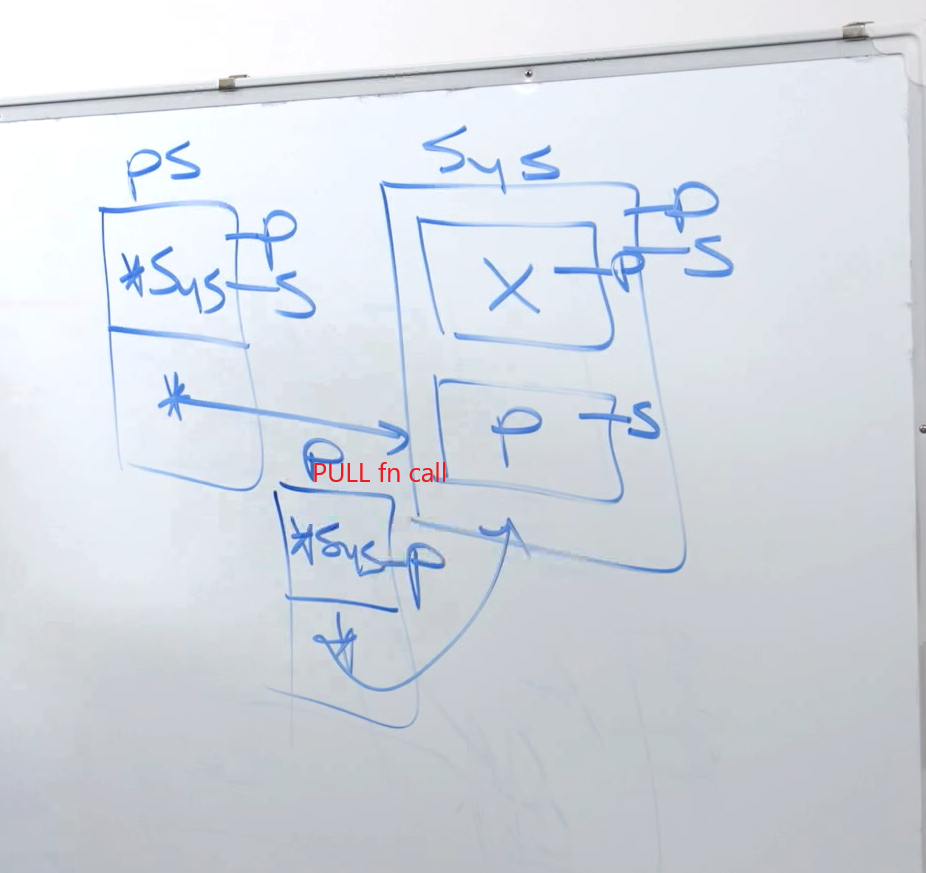 PS
Sys
*Sys
P
S
X
P
P
S
*
P
S
P
PULL fn call
*Sys
P
*